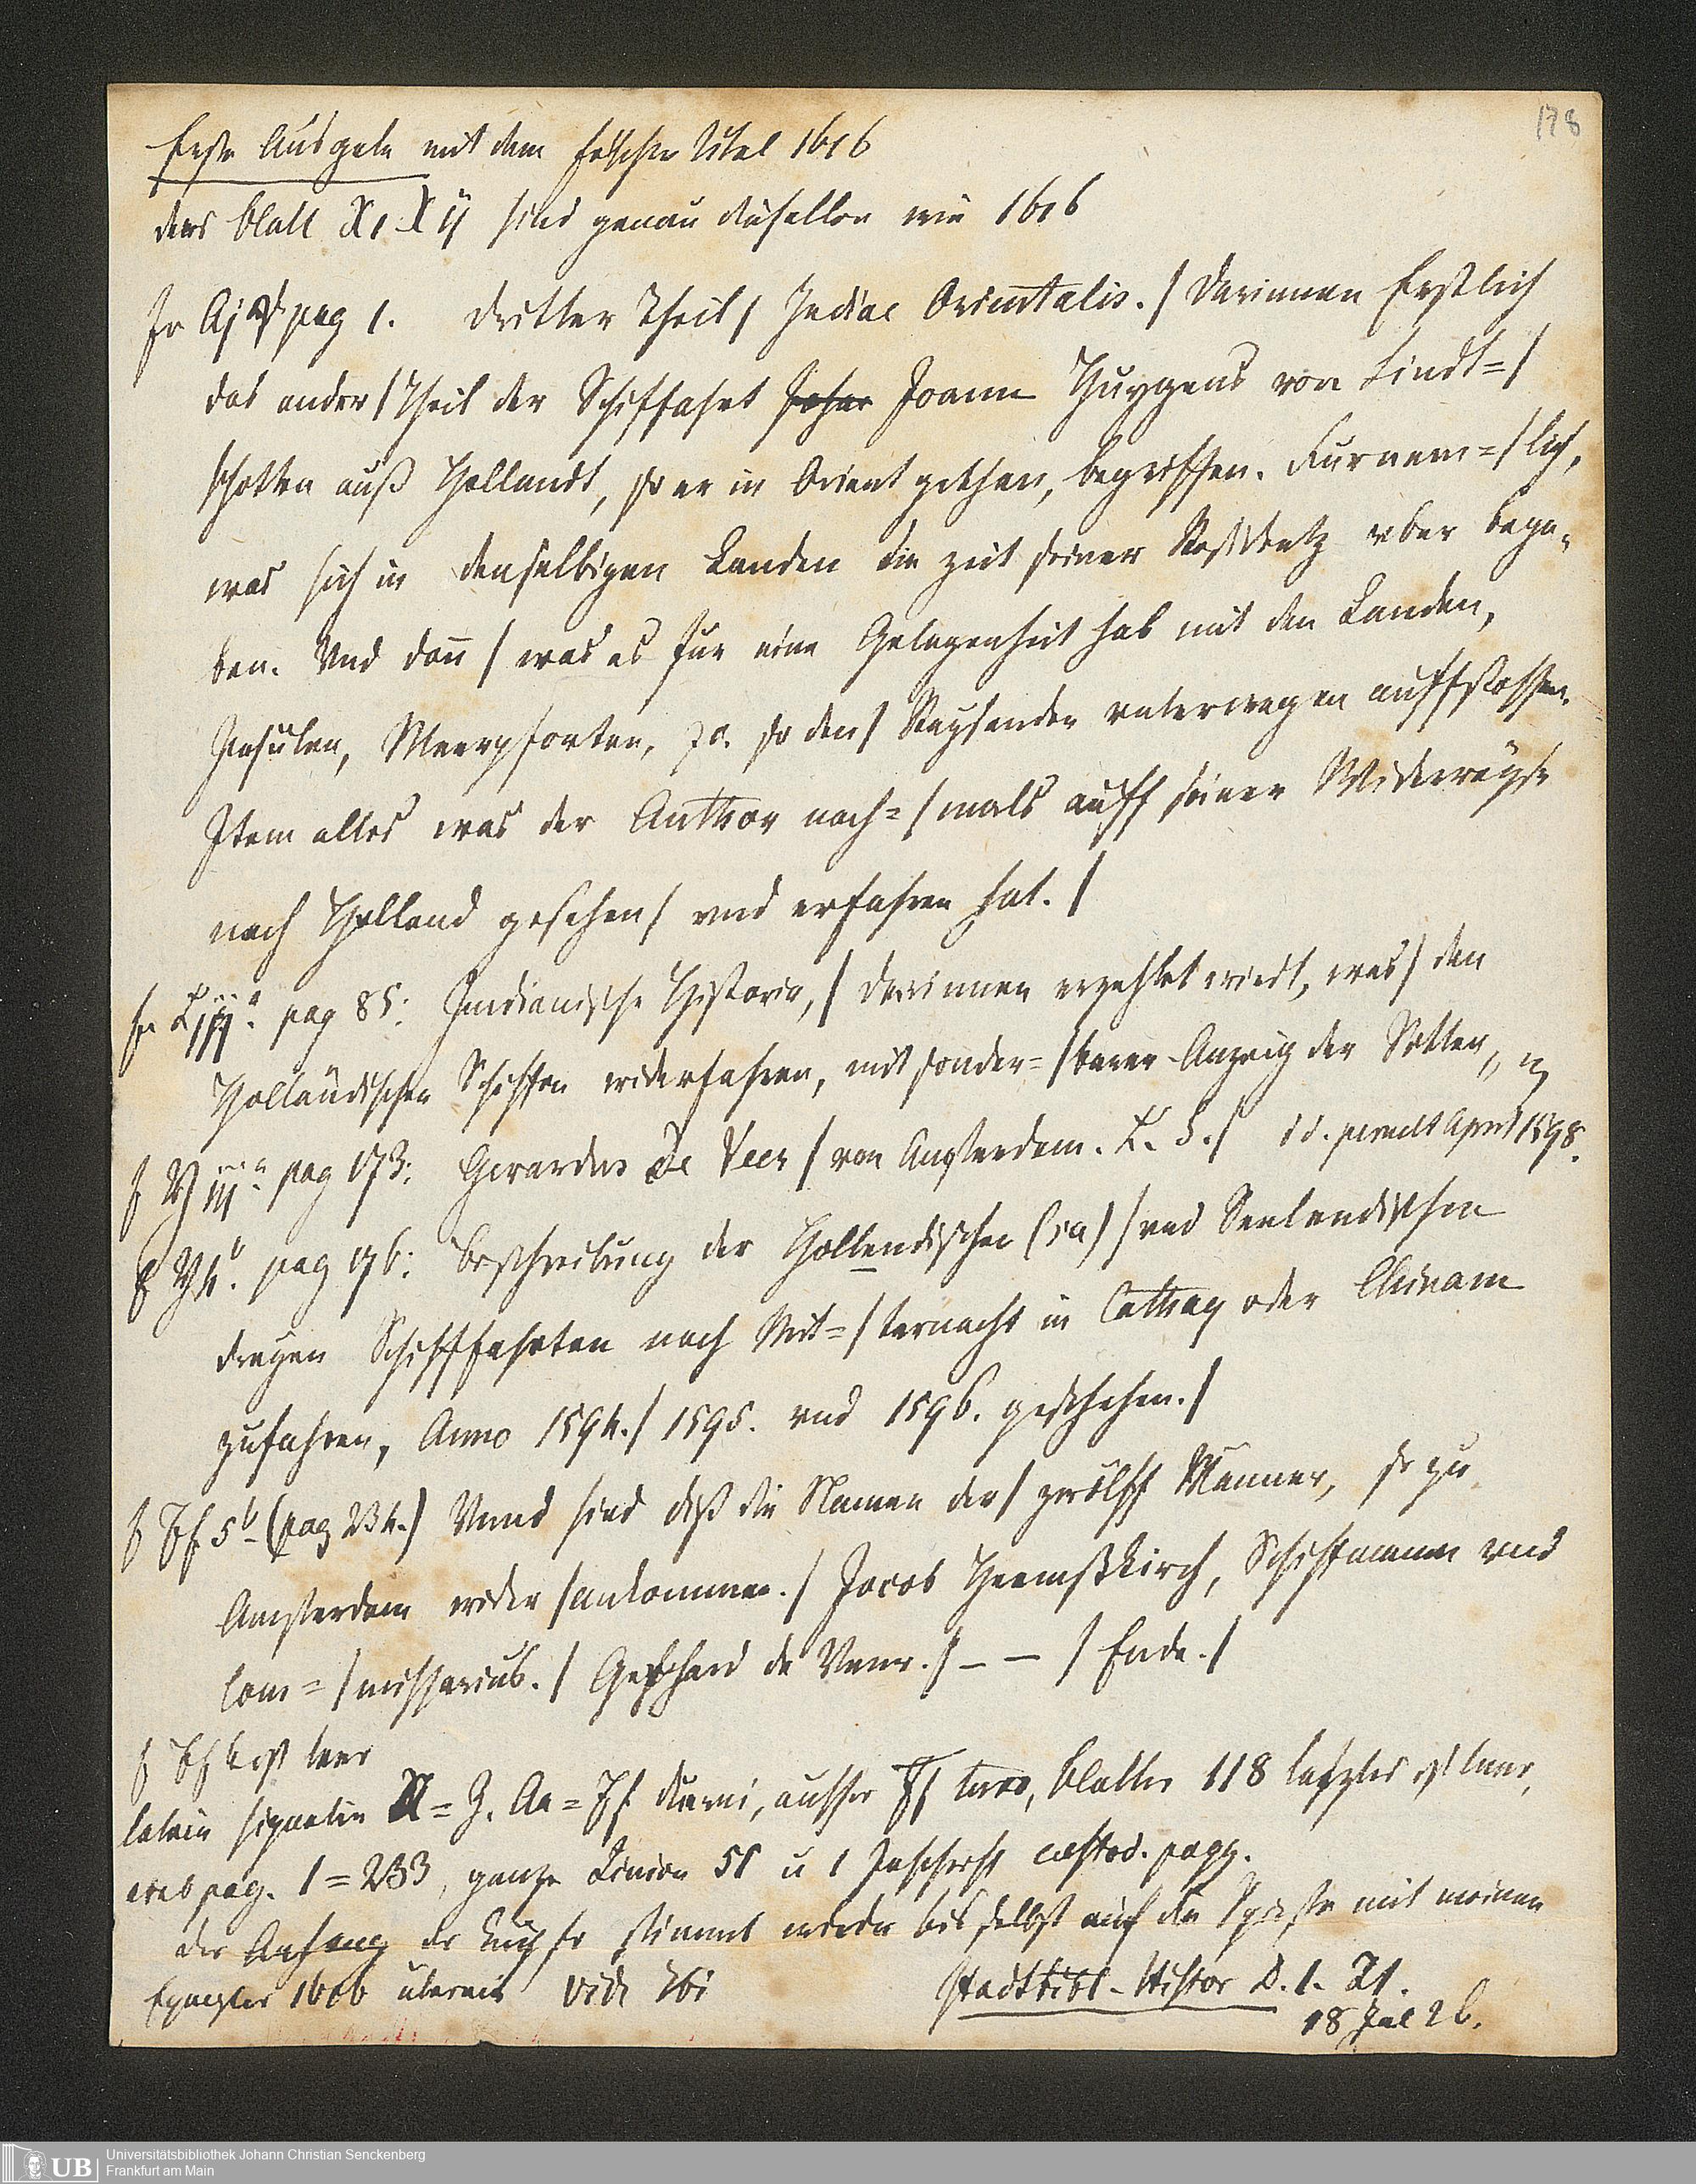 178
Erste Ausgabe mit dem falschen Titel 1616
das blatt X1. X ij sind genau dieselben wie 1616
fo Aj a pag 1. Dritter Theil / Indiae Orientalis. / Darinnen Erstlich
das ander / Theil der Schiffahrt Joann Huygens von Lindt= /
schotten auß Hollandt, so er in Orient gethan, begriffen. Furnem= / lich,
was sich in denselbigen Landen die zeit seiner Residentz vber bega=
ben. Vnd dann / was es für eine Gelegenheit hab mit den Landen,
Insulen, Meerpforten, ꝛc. so den / Reysenden vnterwegen auffstossen.
Item alles was der Author nach= / mals auff seiner Widerreyse
nach Holland gesehen / vnd erfahren hat. /
fo L iij a. pag 85: Indianische Historia, / Darinnen erzehlet wirdt, was / den
Holländischen Schiffen widerfahren, mit sonder= / barer Anzeig der Sitten,
f Y iij a pag 173: Gerardus De Veer / von Amsterdam. L. S. / d. penult April 1598.
f Y4 b. pag 176: Beschreibung der Hollendischen (sic) / vnd Seelendischen
dreyen Schifffahrten nach Mit= / ternacht in Cathay oder Chinam
zufahren, Anno 1594. / 1595. vnd 1596. geschehen. /
f Ff 5 b (pag 234.) Vnnd sind diß die Namen der / zwölff Männer, so zu
Amsterdam wider / ankommen. / Jacob Heemßkirch, Schiffmann vnd
Com= / missarius. / Gerhard de Veer. / – – / Ende. /
f Ff 6 ist leer
signatur A = Z. Aa = Ff. duerni, ausser Ff terno, blätter 118 letztes ist leer,
pag. 1 = 233, ganze Linien 51 u 1 Inschrift custod. pagg.
der Anfang der Kupfer stimmt wieder bis selbst auf die mit meinem
Exemplar 1606 überein vidi ibi Stadtbibl. Histor D. 1. 21.
18 Jul 26.
UB Universitätsbibliothek Johann Christian Senckenberg
Frankfurt am Main